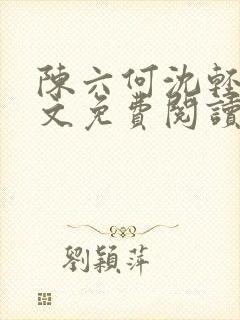 陳六何沈輕
文免費閱讀
劉穎萍